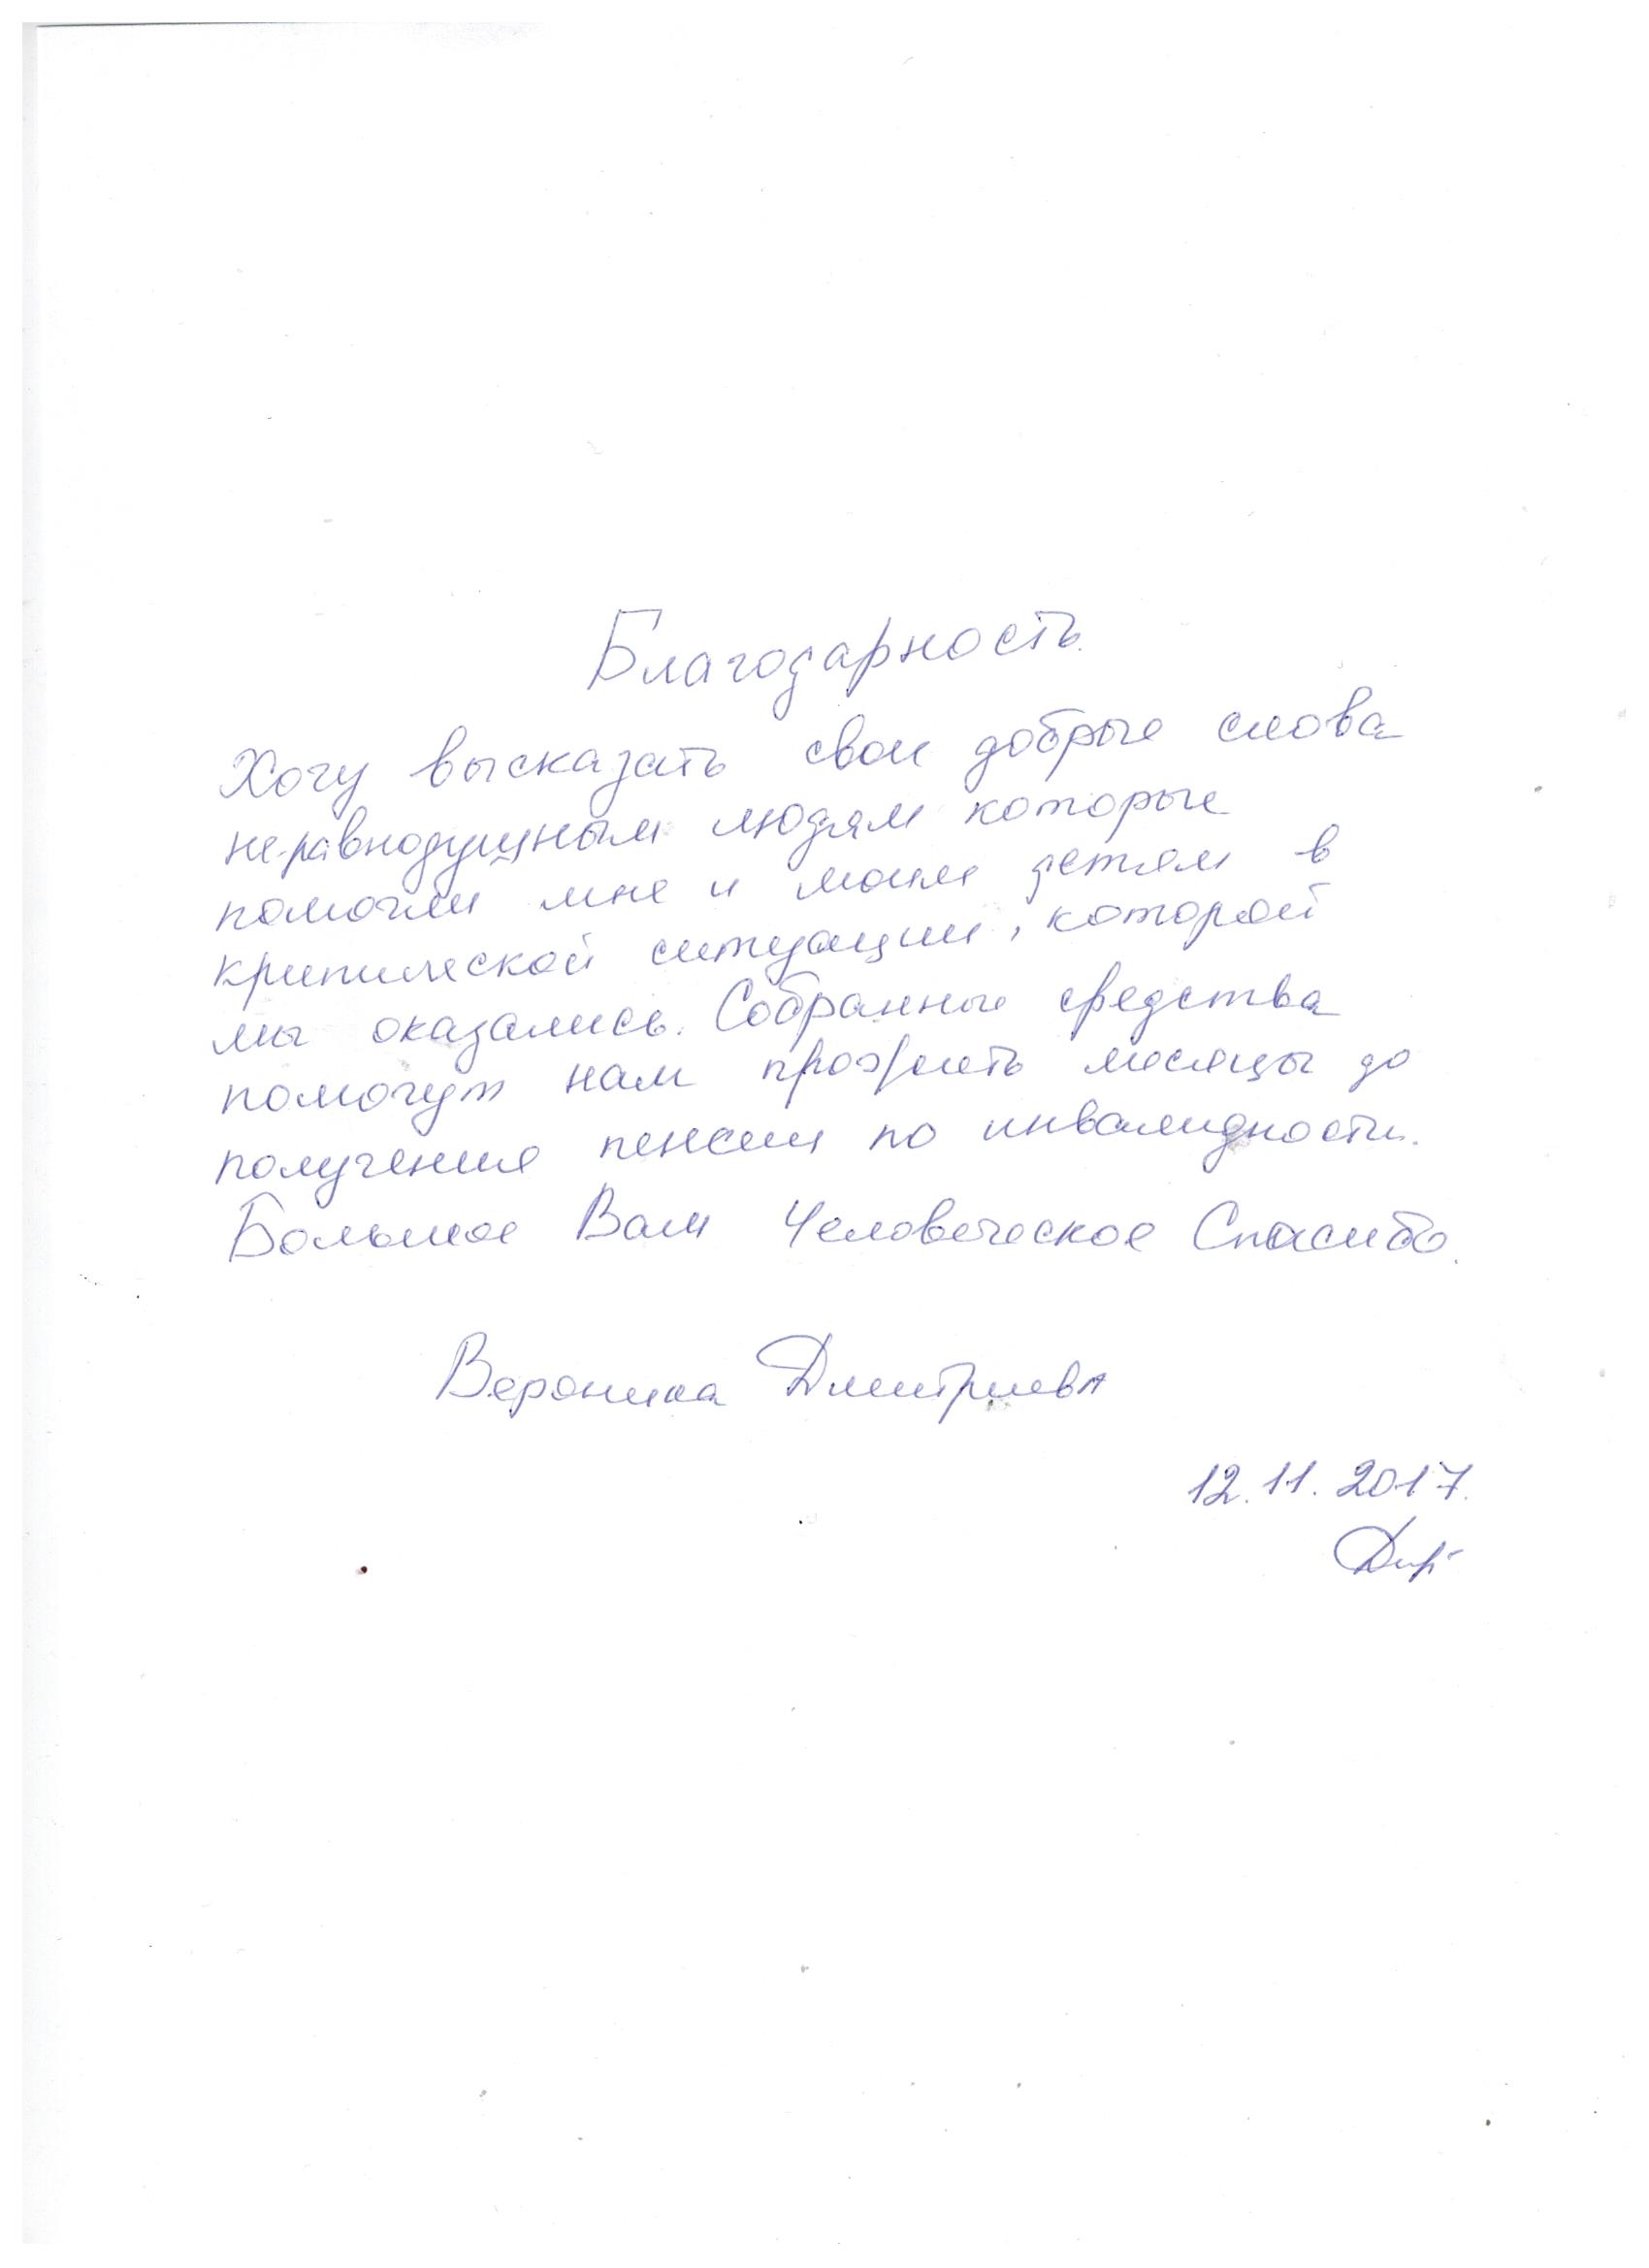 Благодарность.
Хочу высказать свои добрые слова
неравнодущным людям которые
помогли мне и моим детям в
критической ситуации, которой
мы оказались. Собранные средства
помогут нам прожить месяцы до
получения пенсии по инвалидности.
Большое Вам Человеческое Спасибо.
Вероника Дмитриева
12.11.2017.